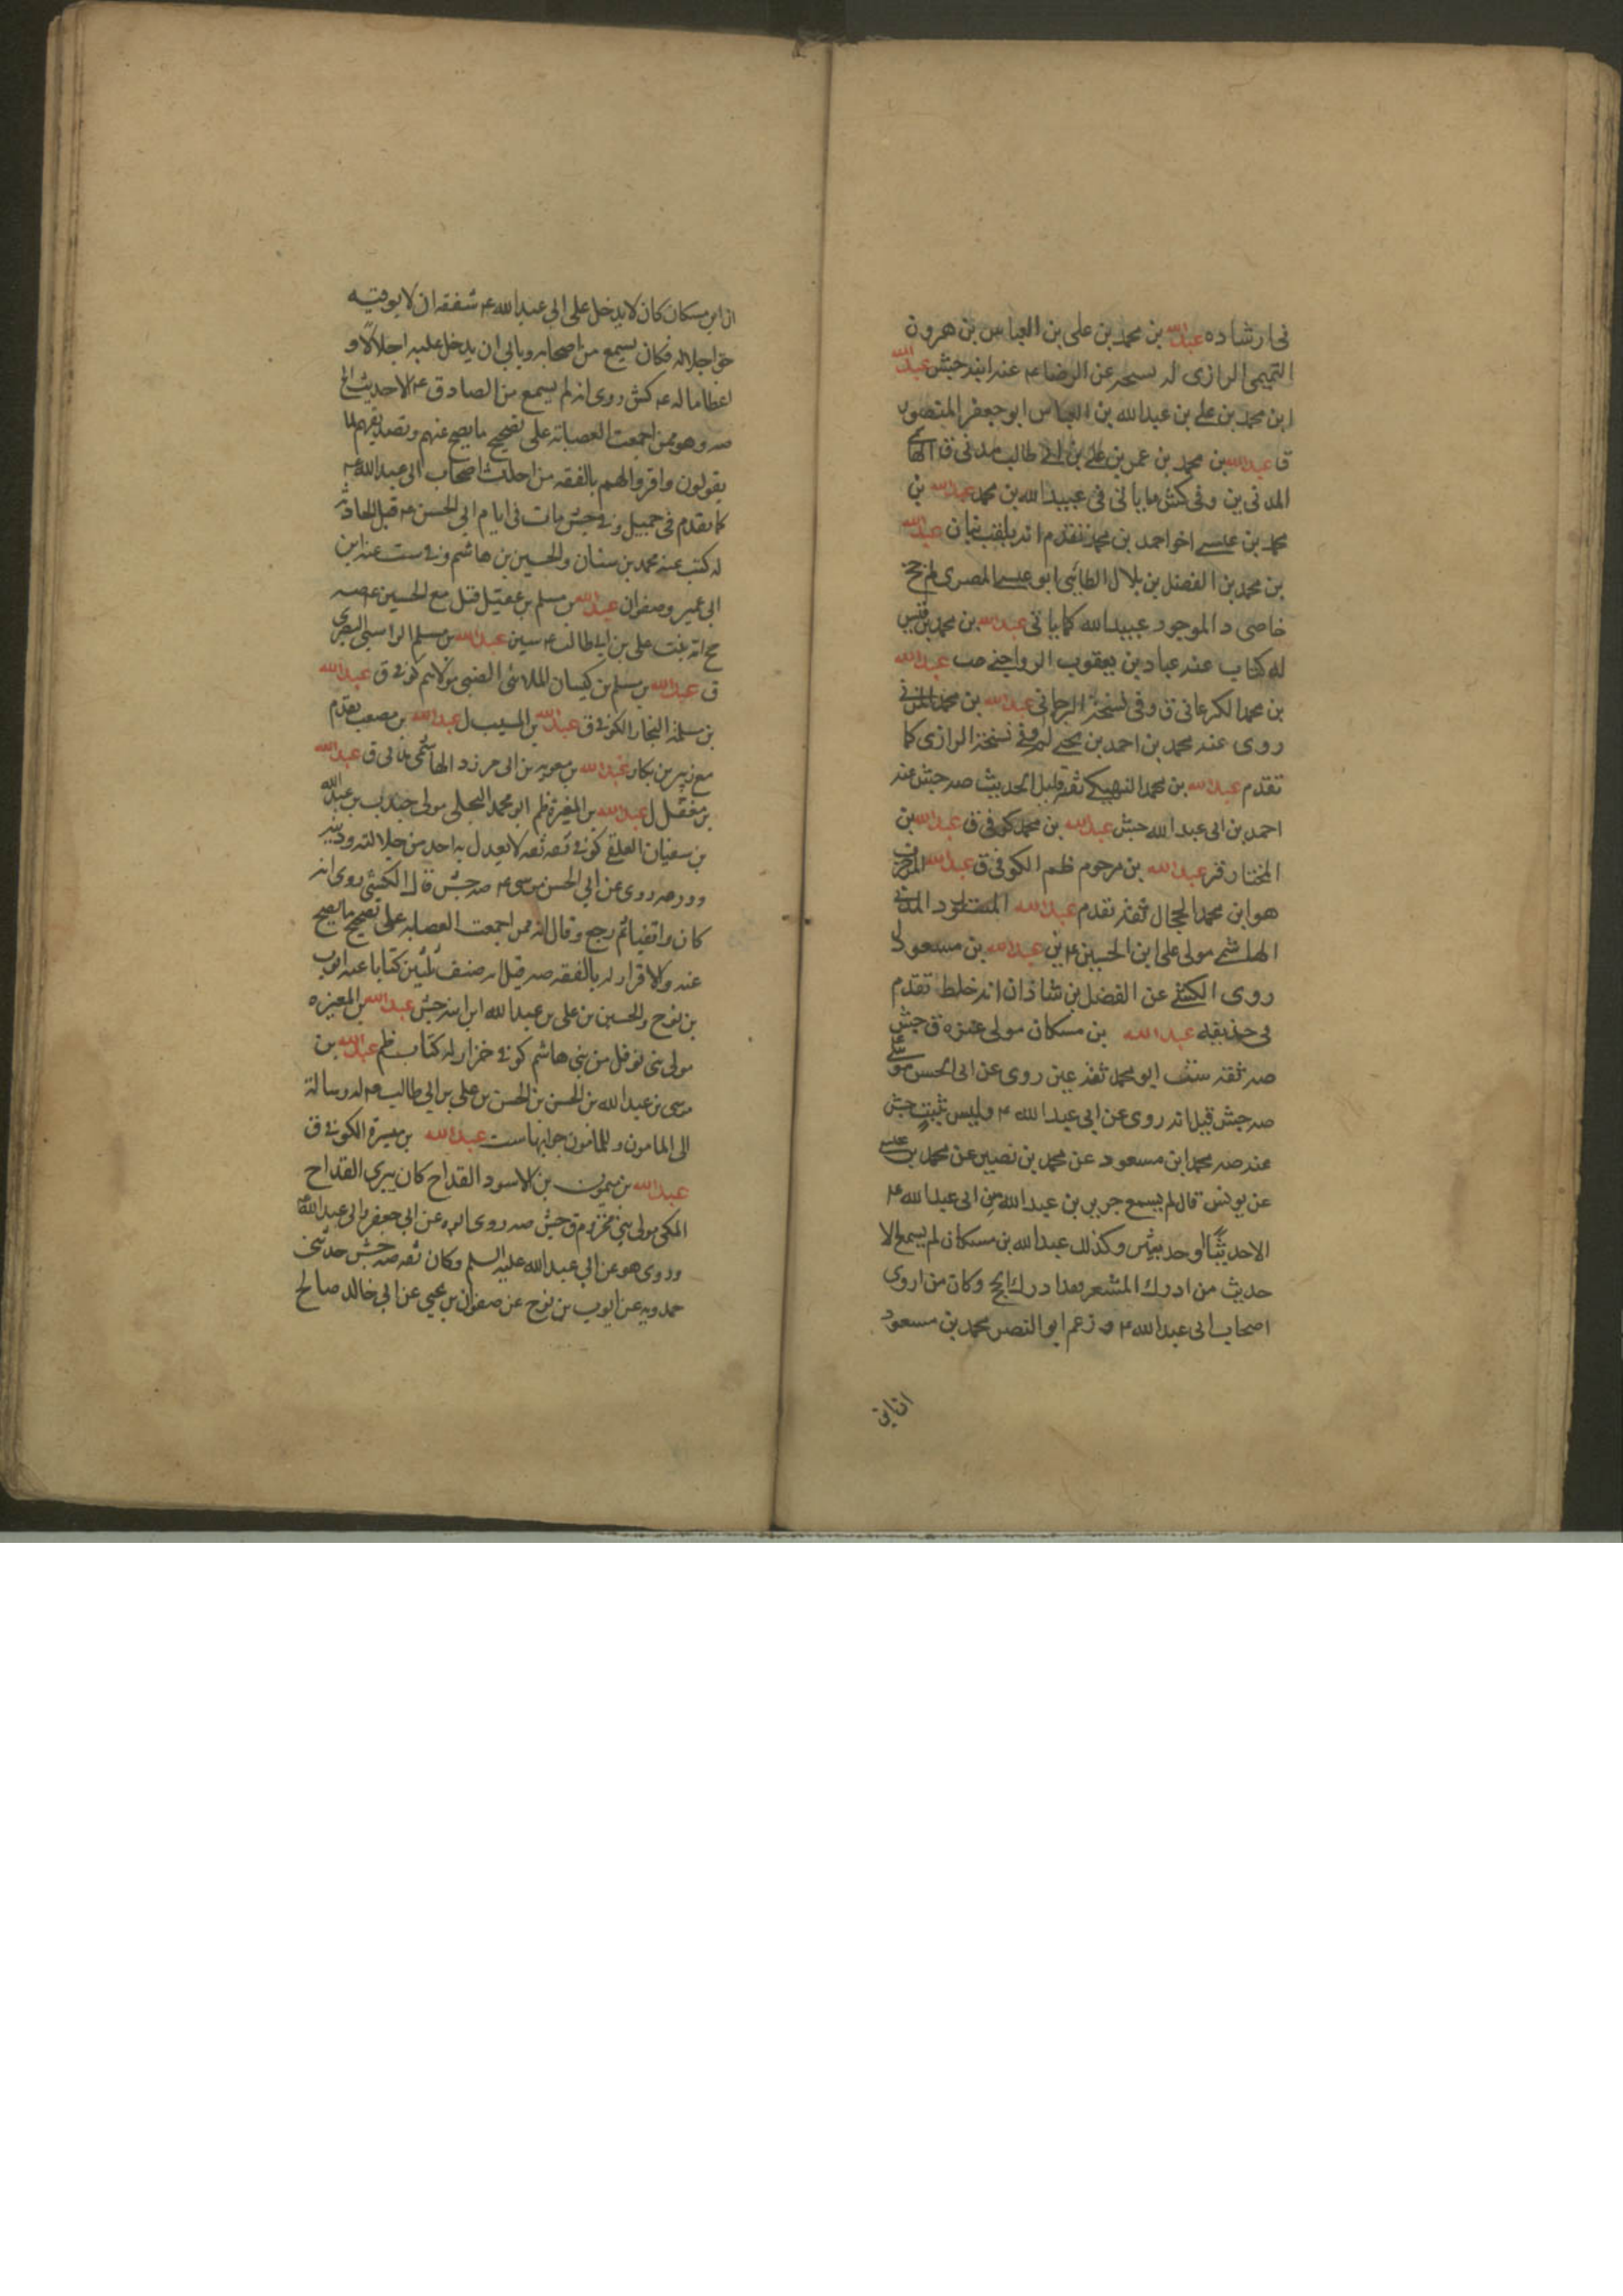 في ارشاده عبدالله بن محمد بن علی بن العباس بن هرون
التميمى الرازى له نسخة عن الرضا ع عنه ابنه جش عبدالله
ابن محمد بن علی بن عبدالله بن العباس ابو جعفر المنصور
ق عبدالله بن محمد بن عمر بن علی بن ابی طالب مدنی ق الهاشمی
المدنی ین وفی كش ما یاتی فی عبیدالله بن محمد عبدالله بن
محمد بن عیسی اخو احمد بن محمد تقدم انه یلقب بنان عبدالله
بن محمد بن الفضل بن بلال الطائی ابو عیسی المصری لم جخ
خاصی د الموجود عبیدالله كما یاتی عبدالله بن محمد بن قیس
له كتاب عنه عباد بن یعقوب الرواجنی جب عبدالله
بن محمد الكرعانی ق وفی نسخة الرجانی عبدالله بن محمد المزنی
روی عنه محمد بن احمد بن یحیی لم وفی نسخة الرازی كما
تقدم عبدالله بن محمد النهیكی ثقة قلیل الحدیث صه جش عنه
احمد بن ابی عبدالله جش عبدالله بن محمد كوفی ق عبدالله بن
المختار قر عبدالله بن مرحوم ظم الكوفی ق عبدالله المزخرف
هو ابن محمد الحجال ثقة تقدم عبدالله المستورد المدنی
الهاشمی مولی علی ابن الحسین ع ین عبدالله بن مسعود ل
روی الكشی عن الفضل بن شاذان انه خلط تقدم
فی حذیفه عبدالله بن مسكان مولی عنزه ق جش
صه ثقة ست ابو محمد ثقة عین روی عن ابی الحسن موسی ع
صه جش قیل انه روی عن ابی عبدالله ع ولیس بثبت جش
عنه صه محمد ابن مسعود عن محمد بن نصیر عن محمد بن عیسی
عن یونس قال لم یسمع حریز بن عبدالله من ابی عبدالله ع
الا حدیثًا او حدیثین وكذلك عبدالله بن مسكان لم یسمع الا
حدیث من ادرك المشعر فقد ادرك الحج وكان من اروی
اصحاب ابی عبدالله ع و زعم ابو النصر محمد بن مسعود
ان ابن
ان ابن مسكان كان لا یدخل علی ابی عبدالله ع شفقة ان لا یوفیه
حق اجلاله فكان یسمع من اصحابه ویابی ان یدخل علیه اجلالًا و
اعظاما له ع كش روی انه لم یسمع من الصادق ع الا حدیث الخ
صه وهو ممن اجمعت العصابة علی تصحیح ما یصح عنهم وتصدیقهم لما
یقولون واقروا لهم بالفقه من احداث اصحاب ابی عبدالله ع
كما تقدم فی جمیل وفی جش مات فی ایام ابی الحسن ع قبل الحادثة
له كتب عنه محمد بن سنان والحسین بن هاشم وفی ست عنه ابن
ابی عمیر وصفوان عبدالله بن مسلم بن عقیل قتل مع الحسین ع صه
جخ امه بنت علی بن ابی طالب ع سین عبدالله بن مسلم الراسبی البصری
ق عبدالله بن مسلم بن كیسان الملائی الضبی مولاهم كوفی ق عبدالله
بن مسلمة النجار الكوفی ق عبدالله بن المسیب ل عبدالله بن مصعب تقدم
مع زبیر بن بكار عبدالله بن معویه بن ابی مزرد الهاشمی مدنی ق عبدالله
بن مغفل ل عبدالله بن المغیرة ظم ابو محمد البجلی مولی جندب بن عبدالله
بن سفیان العلقی كوفی ثقه ثقه لا یعدل به احد من جلالته ودینه
وورعه روی عن ابی الحسن موسی ع صه جش قال الكشی روی انه
كان واقفیا ثم رجع وقال انه ممن اجمعت العصابه علی تصحیح ما یصح
عنه والاقرار له بالفقه صه قیل انه صنف ثلثین كتابا عنه ایوب
بن نوح والحسین بن علی بن عبدالله ابن ابنه جش عبدالله بن المغیره
مولی بنی نوفل من بنی هاشم كوفی خزاز له كتاب ظم عبدالله بن
موسی بن عبدالله بن الحسن بن الحسن بن علی بن ابی طالب ع له رسالة
الی المامون وللمامون جوابها ست عبدالله بن میسرة الكوفی ق
عبدالله بن میمون بن الاسود القداح كان یبری القداح
المكی مولی بنی مخزوم ق جش صه روی ابوه عن ابی جعفر وابی عبدالله ع
وروی هو عن ابی عبدالله علیه السلم وكان ثقه صه جش حدثنی
حمدویه عن ایوب بن نوح عن صفوان بن یحیی عن ابی خالد صالح